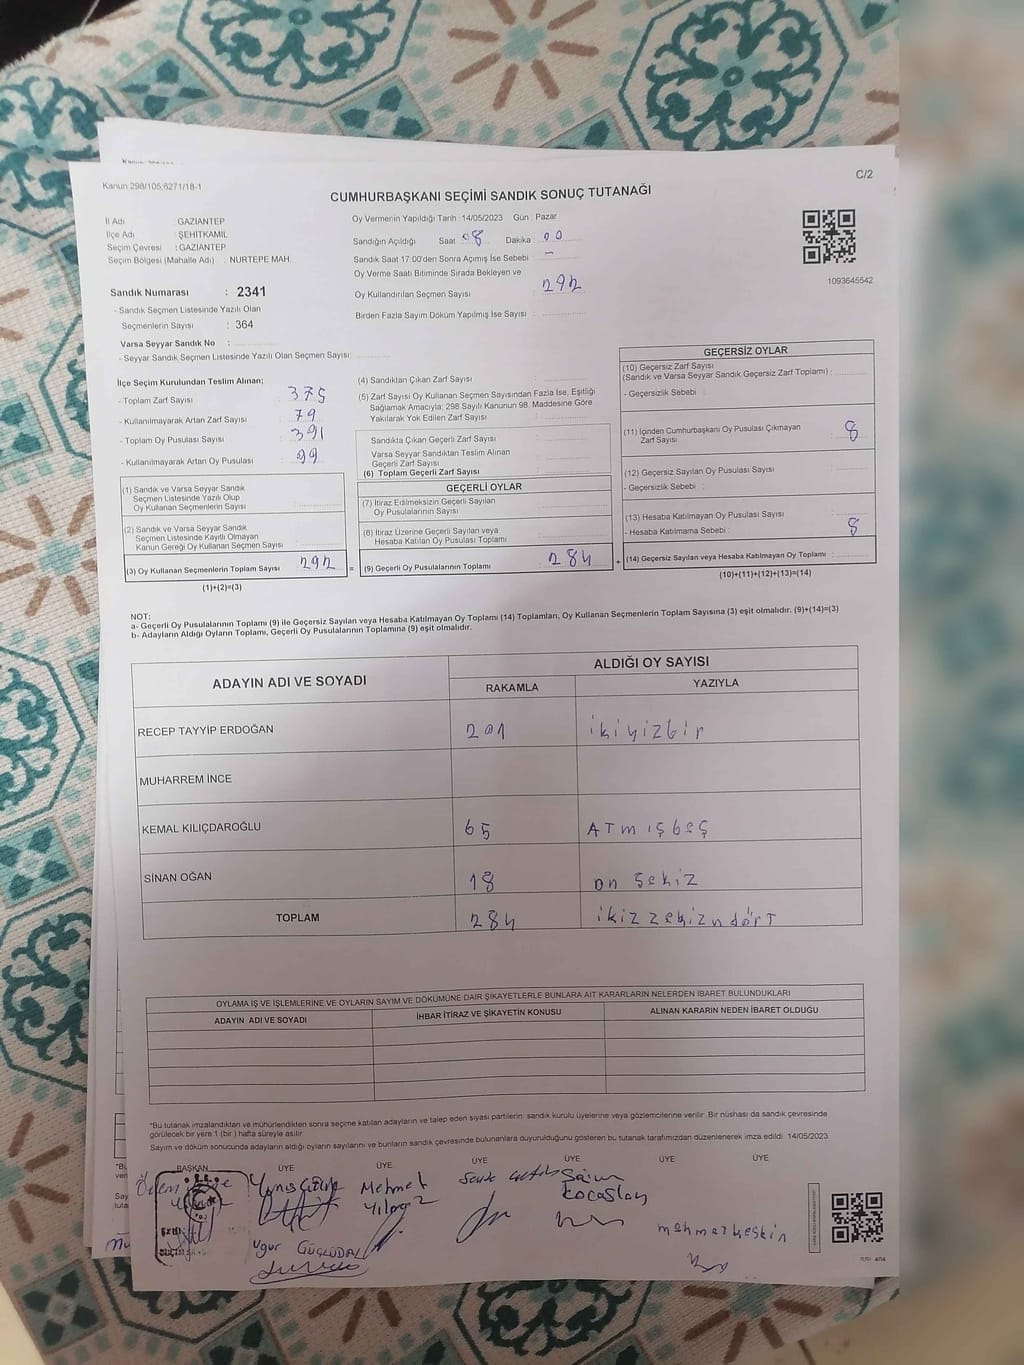 Kanun 298/105,6271/18-1
C/2
CUMHURBAŞKANI SEÇİMİ SANDIK SONUÇ TUTANAĞI
İl Adı : GAZİANTEP
İlçe Adı : ŞEHİTKAMİL
Seçim Çevresi : GAZİANTEP
Seçim Bölgesi (Mahalle Adı) : NURTEPE MAH.
Oy Vermenin Yapıldığı Tarih : 14/05/2023 Gün : Pazar
Sandığın Açıldığı Saat 08 Dakika : 00
Sandık Saat 17:00'den Sonra Açımış İse Sebebi : –
Oy Verme Saati Bitiminde Sırada Bekleyen ve
Oy Kullandırılan Seçmen Sayısı : 292
Birden Fazla Sayım Döküm Yapılmış İse Sayısı :
1093645542
Sandık Numarası : 2341
- Sandık Seçmen Listesinde Yazılı Olan
Seçmenlerin Sayısı : 364
Varsa Seyyar Sandık No :
- Seyyar Sandık Seçmen Listesinde Yazılı Olan Seçmen Sayısı:
İlçe Seçim Kurulundan Teslim Alınan;
- Toplam Zarf Sayısı : 375
- Kullanılmayarak Artan Zarf Sayısı : 79
- Toplam Oy Pusulası Sayısı : 391
- Kullanılmayarak Artan Oy Pusulası : 99
(1) Sandık ve Varsa Seyyar Sandık
Seçmen Listesinde Yazılı Olup
Oy Kullanan Seçmen Sayısı :
(2) Sandık ve Varsa Seyyar Sandık
Seçmen Listesinde Kayıtlı Olmayan
Kanun Gereği Oy Kullanan Seçmen Sayısı :
(3) Oy Kullanan Seçmenlerin Toplam Sayısı : 292 =
(1)+(2)=(3)
(4) Sandıktan Çıkan Zarf Sayısı :
(5) Zarf Sayısı Oy Kullanan Seçmen Sayısından Fazla İse, Eşitliği
Sağlamak Amacıyla; 298 Sayılı Kanunun 98. Maddesine Göre
Yakılarak Yok Edilen Zarf Sayısı :
Sandıkta Çıkan Geçerli Zarf Sayısı :
Varsa Seyyar Sandıktan Teslim Alınan
Geçerli Zarf Sayısı :
(6) Toplam Geçerli Zarf Sayısı :
GEÇERLİ OYLAR
(7) İtiraz Edilmeksizin Geçerli Sayılan
Oy Pusulalarının Sayısı :
(8) İtiraz Üzerine Geçerli Sayılan veya
Hesaba Katılan Oy Pusulası Toplamı :
(9) Geçerli Oy Pusulalarının Toplamı : 284 +
GEÇERSİZ OYLAR
(10) Geçersiz Zarf Sayısı
(Sandık ve Varsa Seyyar Sandık Geçersiz Zarf Toplamı) :
- Geçersizlik Sebebi :
(11) İçinden Cumhurbaşkanı Oy Pusulası Çıkmayan
Zarf Sayısı : 8
(12) Geçersiz Sayılan Oy Pusulası Sayısı :
- Geçersizlik Sebebi :
(13) Hesaba Katılmayan Oy Pusulası Sayısı : 8
- Hesaba Katılmama Sebebi :
(14) Geçersiz Sayılan veya Hesaba Katılmayan Oy Toplamı :
(10)+(11)+(12)+(13)=(14)
NOT:
a- Geçerli Oy Pusulalarının Toplamı (9) ile Geçersiz Sayılan veya Hesaba Katılmayan Oy Toplamı (14) Toplamları, Oy Kullanan Seçmenlerin Toplam Sayısına (3) eşit olmalıdır. (9)+(14)=(3)
b- Adayların Aldığı Oyların Toplamı, Geçerli Oy Pusulalarının Toplamına (9) eşit olmalıdır.
ADAYIN ADI VE SOYADI ALDIĞI OY SAYISI
RAKAMLA YAZIYLA
RECEP TAYYİP ERDOĞAN 201 ikiyizbir
MUHARREM İNCE
KEMAL KILIÇDAROĞLU 65 ATmışbeş
SİNAN OĞAN 18 on sekiz
TOPLAM 284 ikiz zekizn dört
OYLAMA İŞ VE İŞLEMLERİNE VE OYLARIN SAYIM VE DÖKÜMÜNE DAİR ŞİKAYETLERLE BUNLARA AİT KARARLARIN NELERDEN İBARET BULUNDUKLARI
ADAYIN ADI VE SOYADI İHBAR İTİRAZ VE ŞİKAYETİN KONUSU ALINAN KARARIN NEDEN İBARET OLDUĞU
*Bu tutanak imzalandıktan ve mühürlendikten sonra seçime katılan adayların ve talep eden siyasi partilerin sandık kurulu üyelerine veya gözlemcilerine verilir. Bir nüshası da sandık çevresinde
görülecek bir yere 1 (bir) hafta süreyle asılır
Sayım ve döküm sonucunda adayların aldığı oyların sayılarını ve bunların sandık çevresinde bulunanlara duyurulduğunu gösteren bu tutanak tarafımızdan düzenlenerek imza edildi. 14/05/2023
BAŞKAN ÜYE ÜYE ÜYE ÜYE ÜYE ÜYE
Mehmet
Yılmaz
Saim
Kocaslan
Ugur GÜÇLÜDAL
mehmet keskin